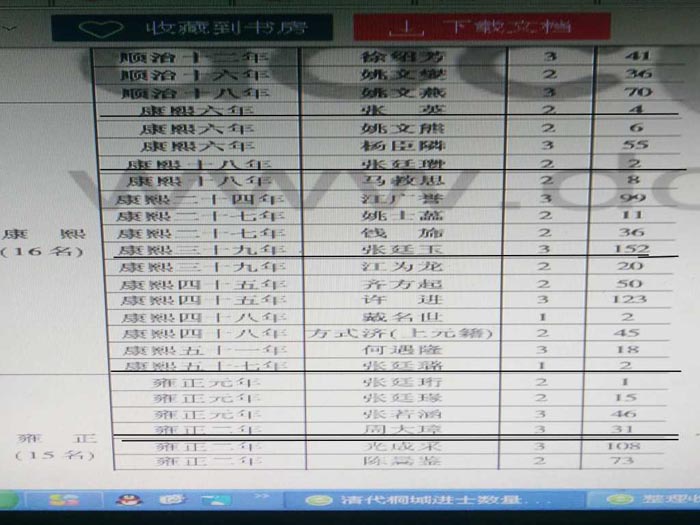 收藏到书房 下载文档
顺治十二年 徐绍芳 3 41
顺治十六年 姚文燮 2 36
顺治十八年 姚文燕 3 70
康熙六年 张英 2 4
康熙六年 姚文熊 2 6
康熙六年 杨臣隣 3 55
康熙十八年 张廷瓒 2 2
康熙十八年 马教思 2 8
康熙二十四年 江广誉 3 99
康熙二十七年 姚士藟 2 11
康熙 康熙二十七年 钱旆 2 36
(16名) 康熙三十九年 张廷玉 3 152
康熙三十九年 江为龙 2 20
康熙四十五年 齐方起 2 50
康熙四十五年 许进 3 123
康熙四十八年 戴名世 1 2
康熙四十八年 方式济(上元籍) 2 45
康熙五十一年 何遇隆 3 18
康熙五十七年 张廷璐 1 2
雍正元年 张廷珩 2 1
雍正元年 张廷瑑 2 15
雍正元年 张若涵 3 46
雍正 雍正二年 周大璋 3 31
(15名) 雍正二年 光成采 3 108
雍正二年 陈 鉴 2 73
www.do
清代桐城进士数量...
整理收